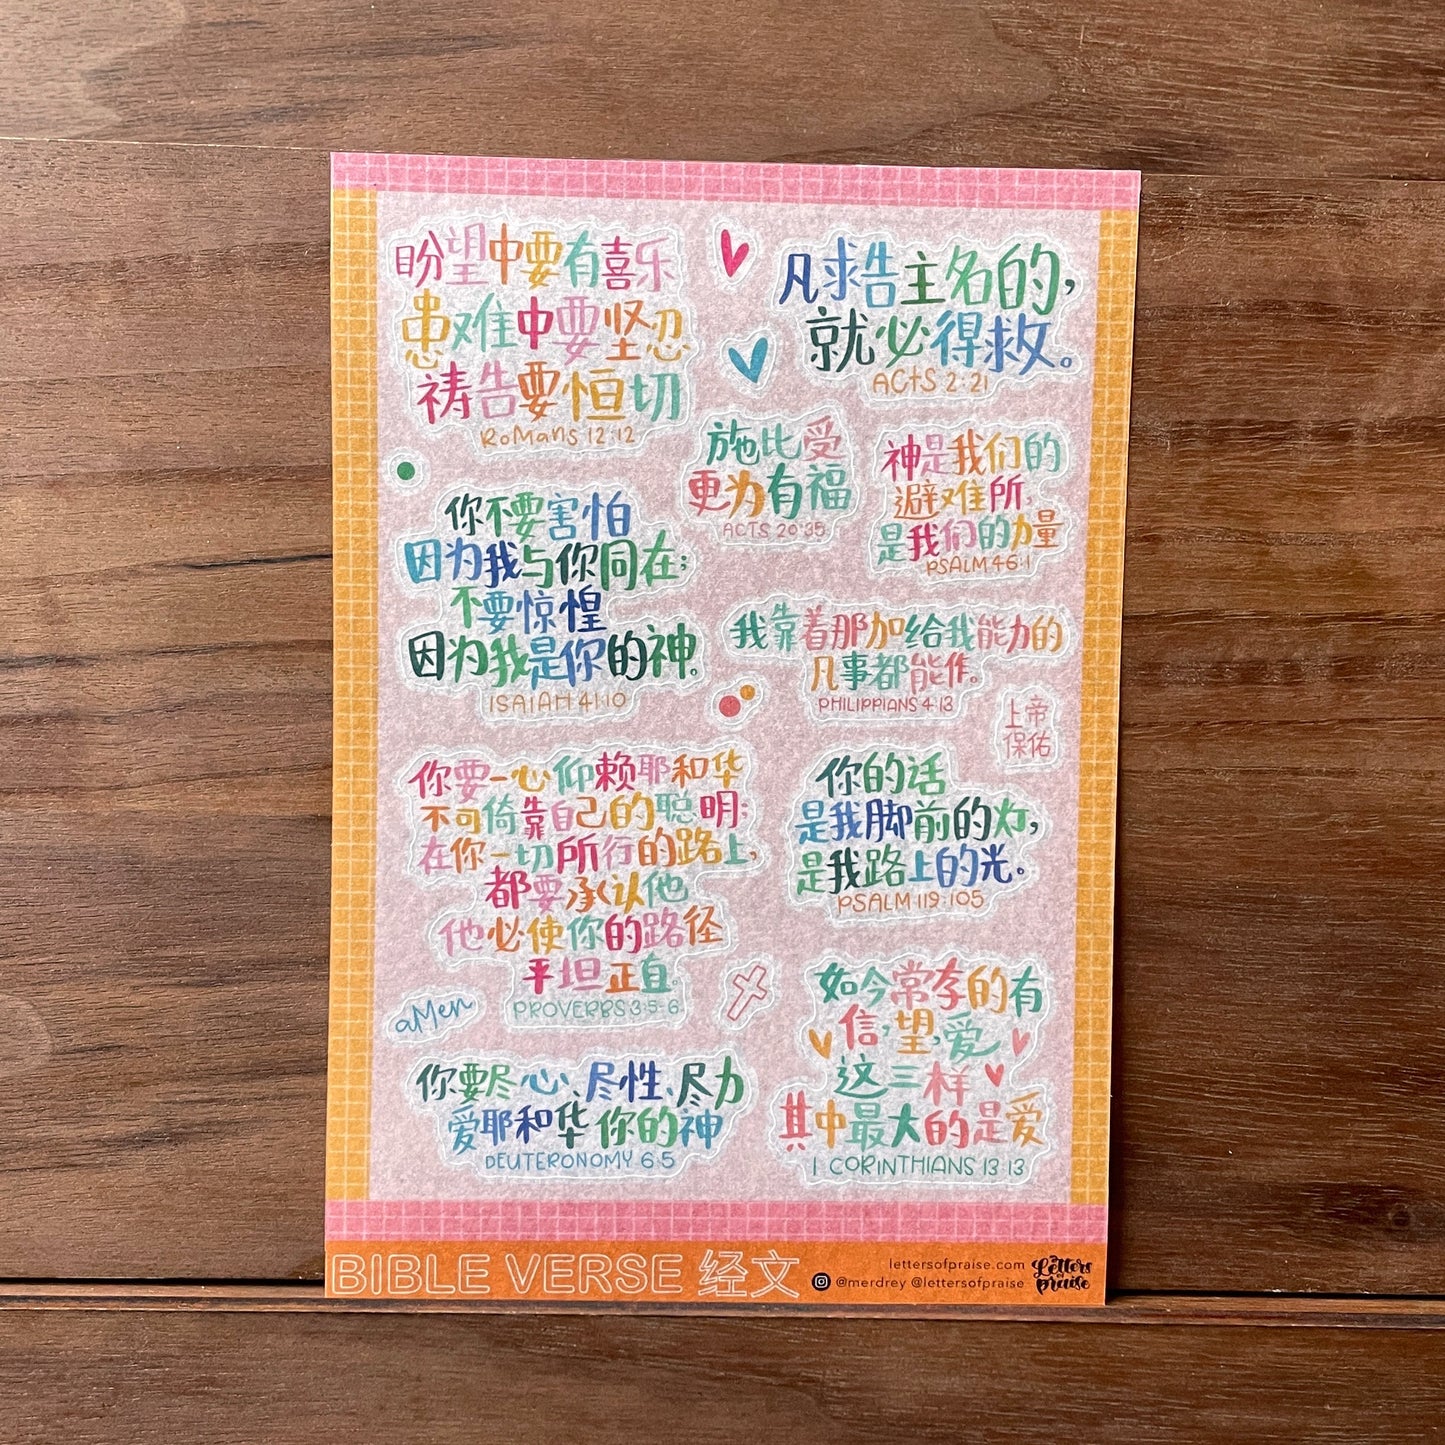 盼望中要有喜乐
患难中要坚忍
祷告要恒切
Romans 12:12
凡求告主名的,
就必得救。
ACTS 2:21
施比受
更为有福
ACTS 20:35
神是我们的
避难所,
是我们的力量
PSALM 46:1
你不要害怕
因为我与你同在;
不要惊惶
因为我是你的神。
ISAIAH 41:10
我靠着那加给我能力的
凡事都能作。
PHILIPPIANS 4:13
上帝
保佑
你要一心仰赖耶和华
不可倚靠自己的聪明;
在你一切所行的路上,
都要承认他
他必使你的路径
平坦正直。
PROVERBS 3:5-6
你的话
是我脚前的灯,
是我路上的光。
PSALM 119:105
aMen
如今常存的有
信,望,爱
这三样
其中最大的是爱
1 CORINTHIANS 13 13
你要尽心、尽性、尽力
爱耶和华你的神
DEUTERONOMY 6:5
BIBLE VERSE 经文
lettersofpraise.com
@merdrey @lettersofpraise
Letters
of
praise